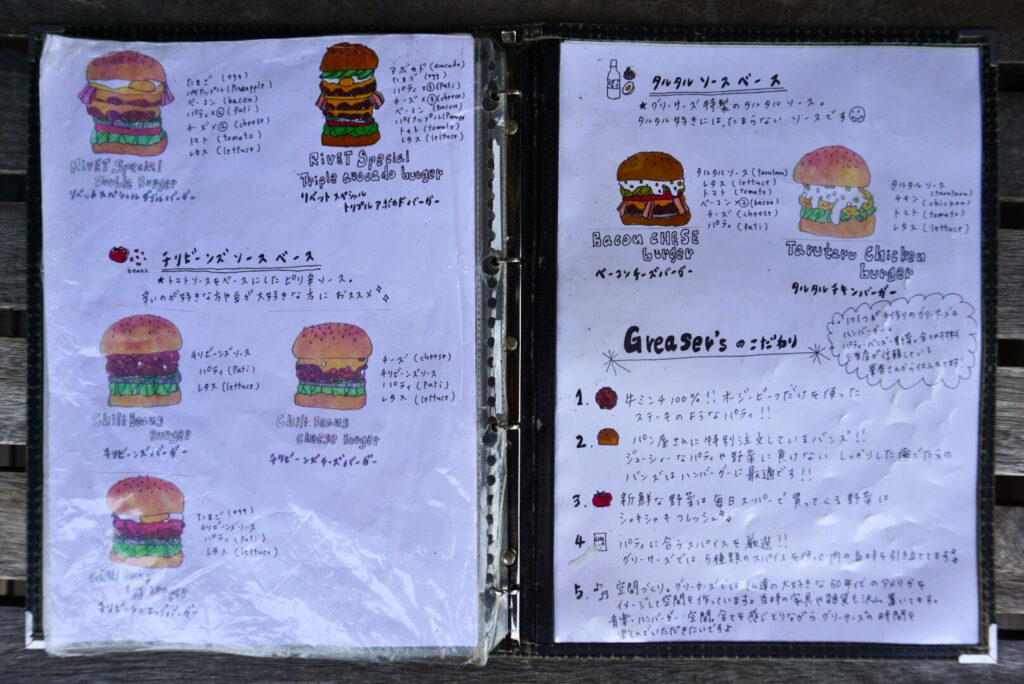 たまご (egg)
パイナップル (Pineapple)
ベーコン (bacon)
パティ×② (Pati)
チーズ×② (cheese)
トマト (tomato)
レタス (lettuce)
RiVET Special
Double Burger
リベットスペシャルダブルバーガー
アボカド (avocado)
たまご (egg)
パティ×③ (Pati)
チーズ×③ (cheese)
ベーコン (bacon)
パイナップル
トマト (tomato)
レタス (lettuce)
RiVET Special
Triple avocado burger
リベットスペシャル
トリプルアボカドバーガー
beans
チリビーンズソースベース
★トマトソースをベースにしたピリ辛ソース。
辛いのが好きな方や豆が大好きな方にオススメ
チリビーンズソース
パティ (Pati)
レタス (lettuce)
Chili Beans
Burger
チリビーンズバーガー
チーズ (cheese)
チリビーンズソース
パティ (Pati)
レタス (lettuce)
Chili Beans
cheese Burger
チリビーンズチーズバーガー
たまご (egg)
チリビーンズソース
パティ (Pati)
レタス (lettuce)
タルタルソースベース
★グリーサーズ特製のタルタルソース。
タルタル好きには、たまらないソースです
タルタルソース (tarutaru)
レタス (lettuce)
トマト (tomato)
ベーコン×② (bacon)
チーズ (cheese)
パティ (Pati)
Bacon CHESE
burger
ベーコンチーズバーガー
タルタルソース
(tarutaru)
チキン (chicken)
トマト (tomato)
レタス (lettuce)
Tarutaru Chicken
burger
タルタルチキンバーガー
Greaser's のこだわり
1つ1つが手作りのグリーサーズの
ハンバーガー。
パティ・バンズ・野菜、全ての材料
当店が信頼している
業者さんから仕入れてます
1. 牛ミンチ100%!! オージービーフだけを使った
ステーキのようなパティ!!
2. パン屋さんに特別注文しているバンズ!!
ジューシィーなパティや野菜に負けない しっかりした歯ごたえの
バンズはハンバーガーに最適です!!
3. 新鮮な野菜は毎日スーパーで買ってくる野菜は
シャキシャキフレッシュ
4 パティに合うスパイスを厳選!!
グリーサーズでは5種類のスパイスを使って肉の旨味を引き立ててます
5. 空間づくり。グリーサーズでは私達の大好きな50年代のアメリカを
イメージして空間を作っています。当時の家具や雑貨も沢山置いてます。
音楽・ハンバーガー・空間、全てを感じとりながらグリーサーズの時間を
楽しんでいただきたいですよ